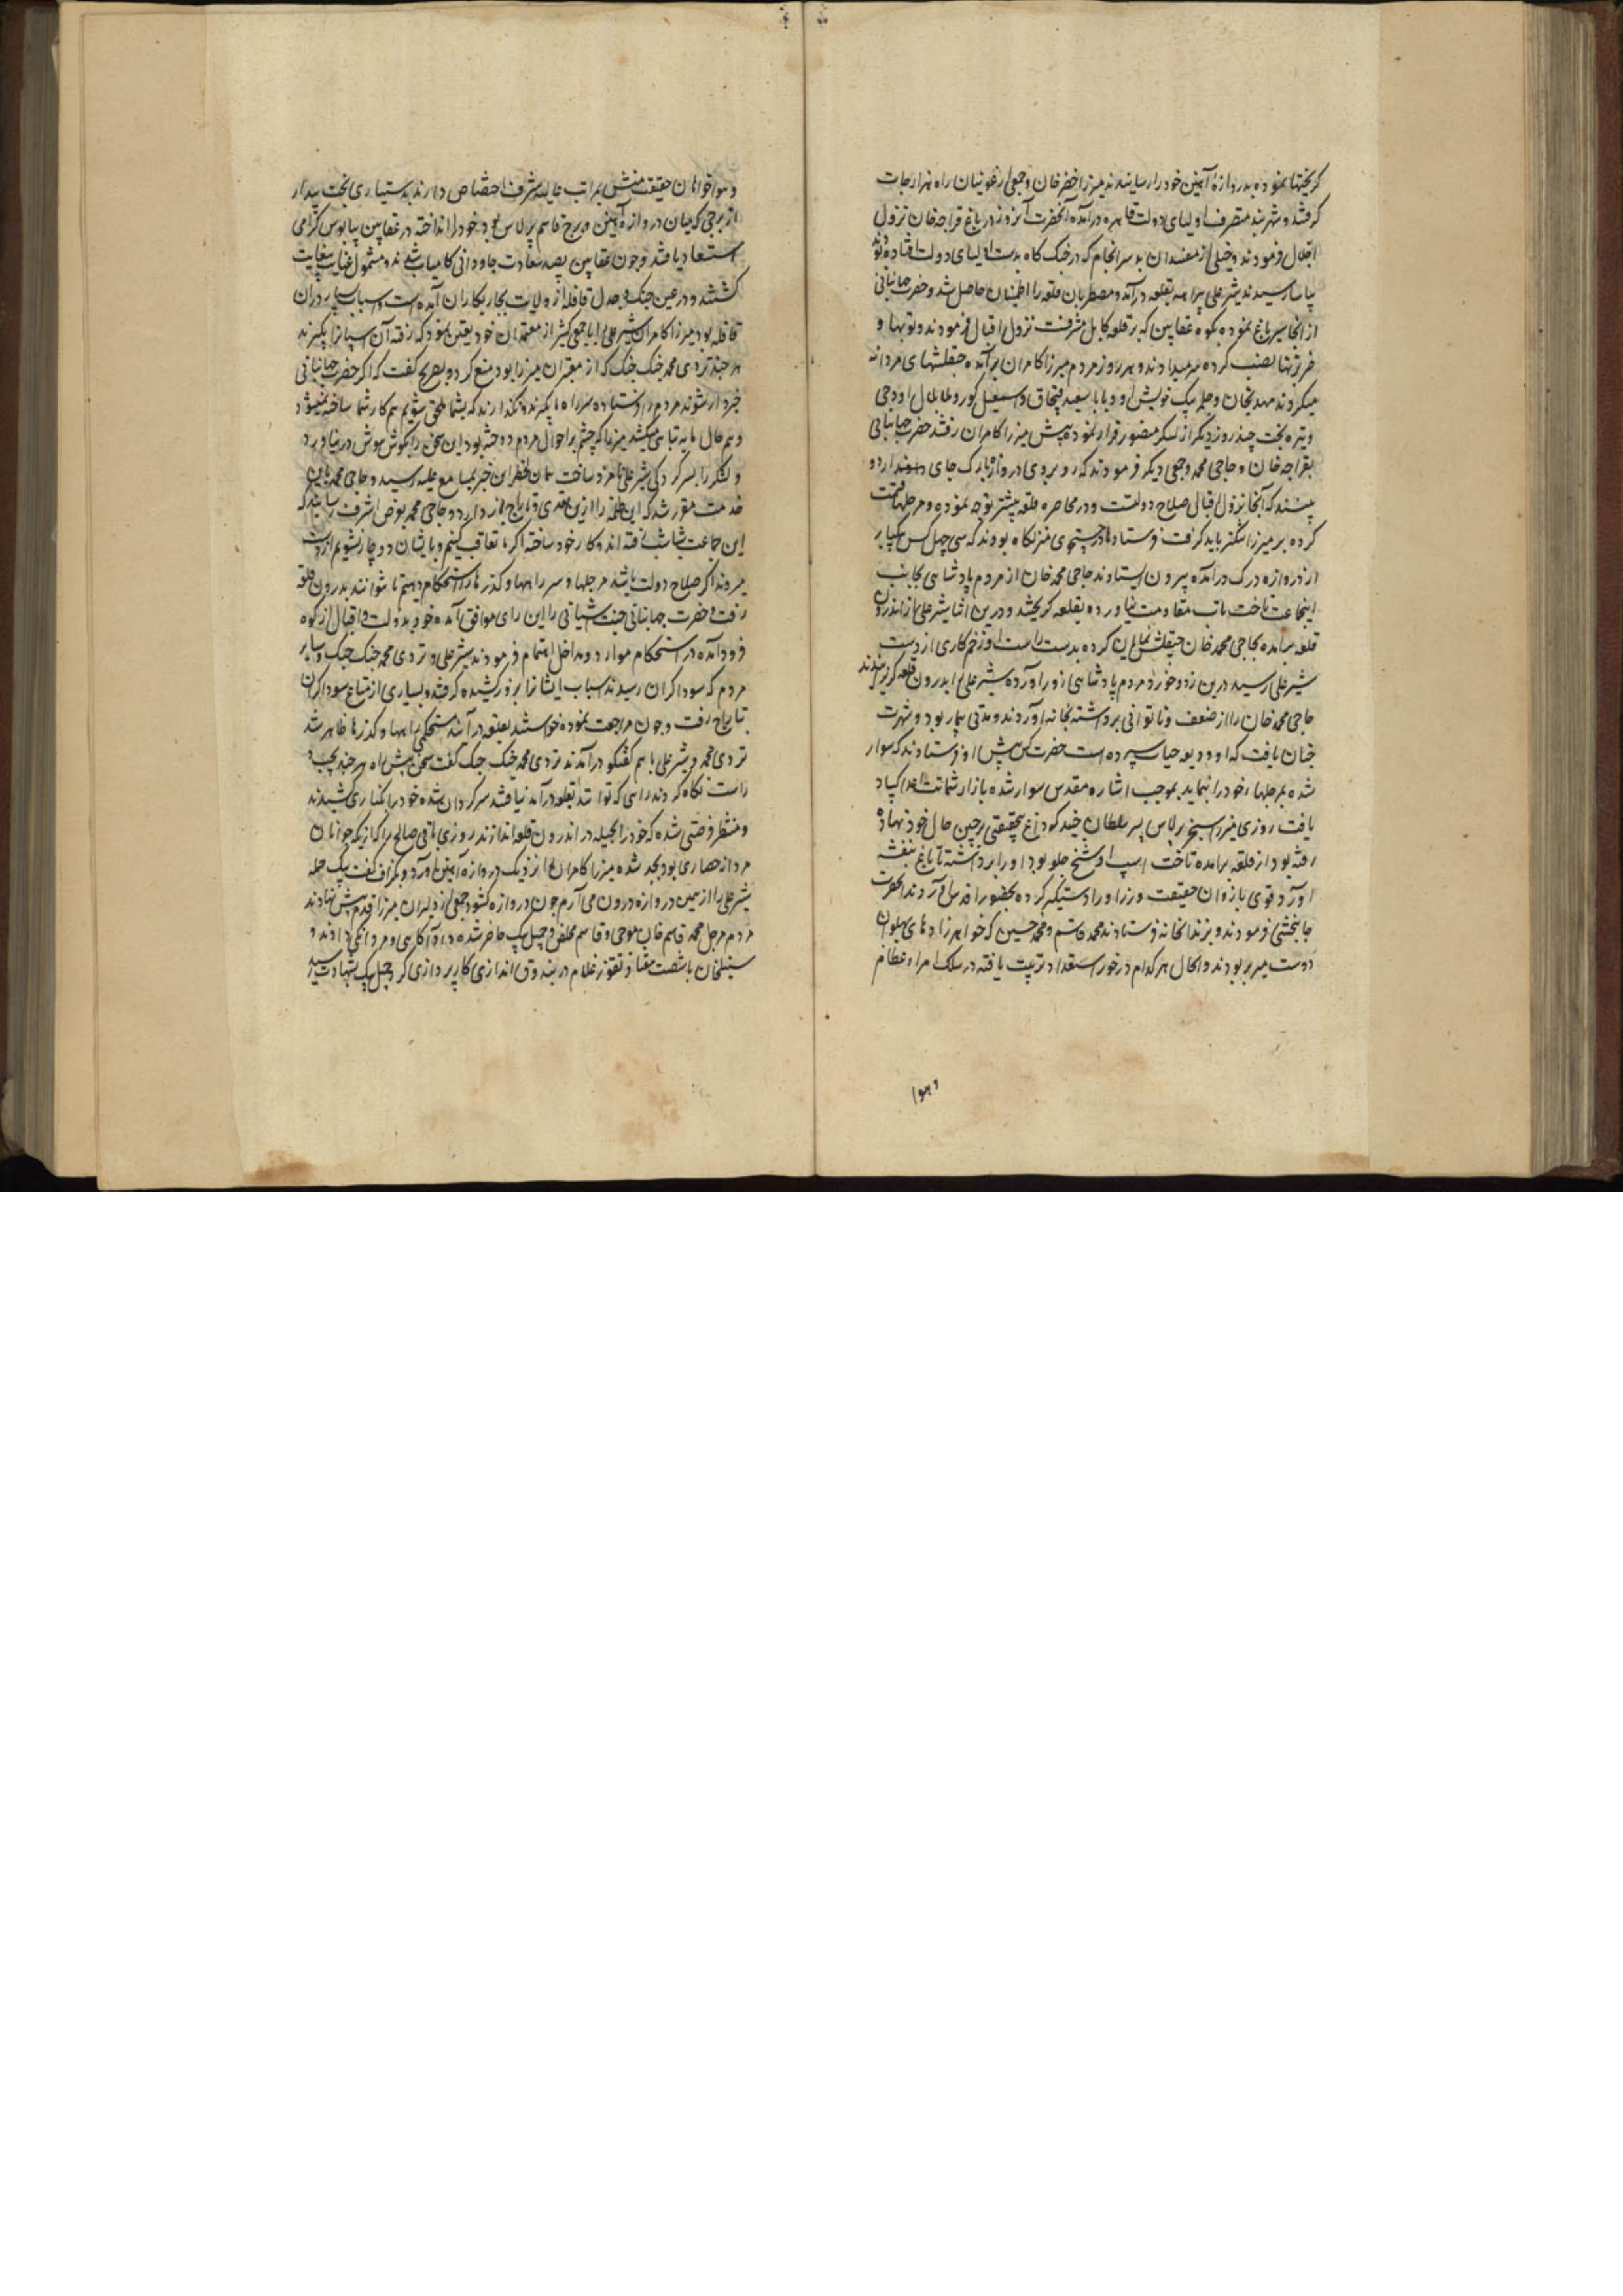 گریختها نموده بدروازهٔ آهنین خود را رسانیدند میرزا خضر خان و جمعی ارغونیان راه هزارجات
گرفتند و شهر بند متصرف اولیای دولت قاهره درآمده آنحضرت آنروز در باغ قراجه خان نزول
اجلال فرمودند و خیلی از مفسدان بد سرانجام که در جنگ گاه بدست اولیای دولت افتاده بودند
بیاسا رسیدند شیر علی بقلعه درآمد و مضطربان قلعه را اطمینان حاصل شد و حضرت جهانبانی
از آنجا سیر باغ نموده بکوه عقابین که بر قلعه کابل مشرفست نزول اقبال فرمودند و توپها و
ضربزنها نصب کرده سر میدادند و هر روز مردم میرزا کامران برآمده چپقلشهای مردانه
میکردند مهدیخان و چلمه بیک خویش او و بابا سعید قبچاق و اسمعیل کور و ملا اودجی
و تیره بخت چند روز دیگر از لشکر منصور فرار نموده پیش میرزا کامران رفتند حضرت جهانبانی
بقراجه خان و حاجی محمد و جمعی دیگر فرمودند که روبروی دروازه یارک جای اردو
ببینند که آنجا نزول اقبال صلاح دولتست و در محاصره قلعه بیشتر توجه نموده و مرچلها قسمت
کرده بر میرزا تنگتر باید گرفت فرستادها در جستجوی منزلگاه بودند که سی چهل کس یکبار
از دروازه درک درآمده بیرون ایستادند حاجی محمد خان از مردم پادشاهی بجانب
اینجماعت تاخت تاب مقاومت نیاورده بقلعه گریختند و درین اثنا شیر علی از اندرون
قلعه برآمده بحاجی محمد خان چپقلش نمایان کرده بدست راست او زخم کاری از دست
شیر علی رسید درین زد و خورد مردم پادشاهی زور آورده شیر علی را بدرون قلعه گریزاندند
حاجی محمد خان را از ضعف و ناتوانی برداشته بخانه آوردند و مدتی بیمار بود و شهرت
چنان یافت که او ودیعه حیات سپرده است حضرت کس پیش او فرستادند که سوار
شده بمرچلها خود را نماید بموجب اشاره مقدس سوار شده بازار شماتت اعدا کساد
یافت روزی میرزا سنجر برلاس پسر سلطان جنید که داغ بیحقیقتی بر جبین حال خود نهاده
رفته بود از قلعه برآمده تاخت اسپ او شخ جلو بود او را برداشته تا باغ بنفشه
آورد قوی بازوان حقیقت ورز او را دستگیر کرده بحضور اقدس آوردند آنحضرت
جانبخشی فرمودند و بزندانخانه فرستادند محمد قاسم و محمد حسین که خواهرزادهای پهلوان
دوست میر بر بودند و الحال هر کدام درخور استعداد تربیت یافته در سلک امراء عظام
وهوا
و هواخواهان حقیقت منش بمراتب عالیه شرف اختصاص دارند بدستیاری بخت بیدار
از برجی که میان دروازه آهنین و برج قاسم برلاس بود خود را انداخته در عقابین بپابوس گرامی
استسعاد یافتند و چون عقابین بصد سعادت جاودانی کامیاب شدند و مشمول عنایت بغایت
گشتند و در عین جنگ و جدل قافله از ولایت بچاریکاران آمده است و اسباب بسیار در آن
قافله بود میرزا کامران شیر علی را با جمعی کثیر از معتمدان خود تعیین نمود که رفته آن اسپانرا بگیرند
هر چند تردی محمد جنگ جنگ که از مقربان میرزا بود منع کرد و بصریح گفت که اگر حضرت جهانبانی
خبردار شوند مردم را فرستاده سر راه ما بگیرند و نگذارند که بشما ملحق شویم هم کار شما ساخته نمیشود
و هم حال ما به تباهی میکشد میرزا که چشم بر احوال مردم دوخته بود این سخن را بگوش هوش در نیاورد
و لشکر را بسرکردگی شیر علی نامزد ساخت همان لحظه این خبر بمسامع علیه رسید و حاجی محمد باین
خدمت مقرر شد که این طلبه را ازین تعدی و تاراج باز دارد و حاجی محمد بعرض اشرف رسانید که
این جماعت شتابان شتافته اند و کار خود ساخته اگر ما تعاقب کنیم و بایشان دوچار نشویم از دست
میروند اگر صلاح دولت باشد مرچلها و سر راهها و گذرها را استحکام دهیم تا نتوانند بدرون قلعه
رفت حضرت جهانبانی جنت آشیانی را این رای موافق آمده خود بدولت و اقبال از کوه
فرود آمده در استحکام موارد و مداخل اهتمام فرمودند شیر علی و تردی محمد جنگ جنگ و سایر
مردم که سوداگران رسیدند اسباب ایشانرا بزور کشیده گرفتند و بسیاری از متاع سوداگران
بتاراج رفت و چون مراجعت نموده خواستند بقلعه درآیند استحکام راهها و گذرها ظاهر شد
تردی محمد و شیر علی با هم گفتگو درآمدند تردی محمد جنگ جنگ گفت سخن پیش آمد هر چند بچپ و
راست نگاه کردند راهی که توانند بقلعه درآمد نیافتند سرگردان شده خود را بکناری کشیدند
و منتظر فرصتی شده که خود را بحیله در اندرون قلعه اندازند روزی باقی صالح را که از یکه جوانان
مردانه حصاری بود بجد شده میرزا کامران را نزدیک دروازه آهنین آورد و بگزاف گفت بیک حمله
شیر علی را از همین دروازه درون می آرم چون دروازه گشود جمعی از دلیران میرزا قدم پیش نهادند
مردم مرچل محمد قاسم خان موجی و قاسم مخلص و جمیل بیک حاضر شده داد آگاهی و مردانگی دادند و
سنبلخان با شصت هفتاد نفر غلام در بندوق اندازی کارپردازی کرد جمیل بیک بشهادت رسید